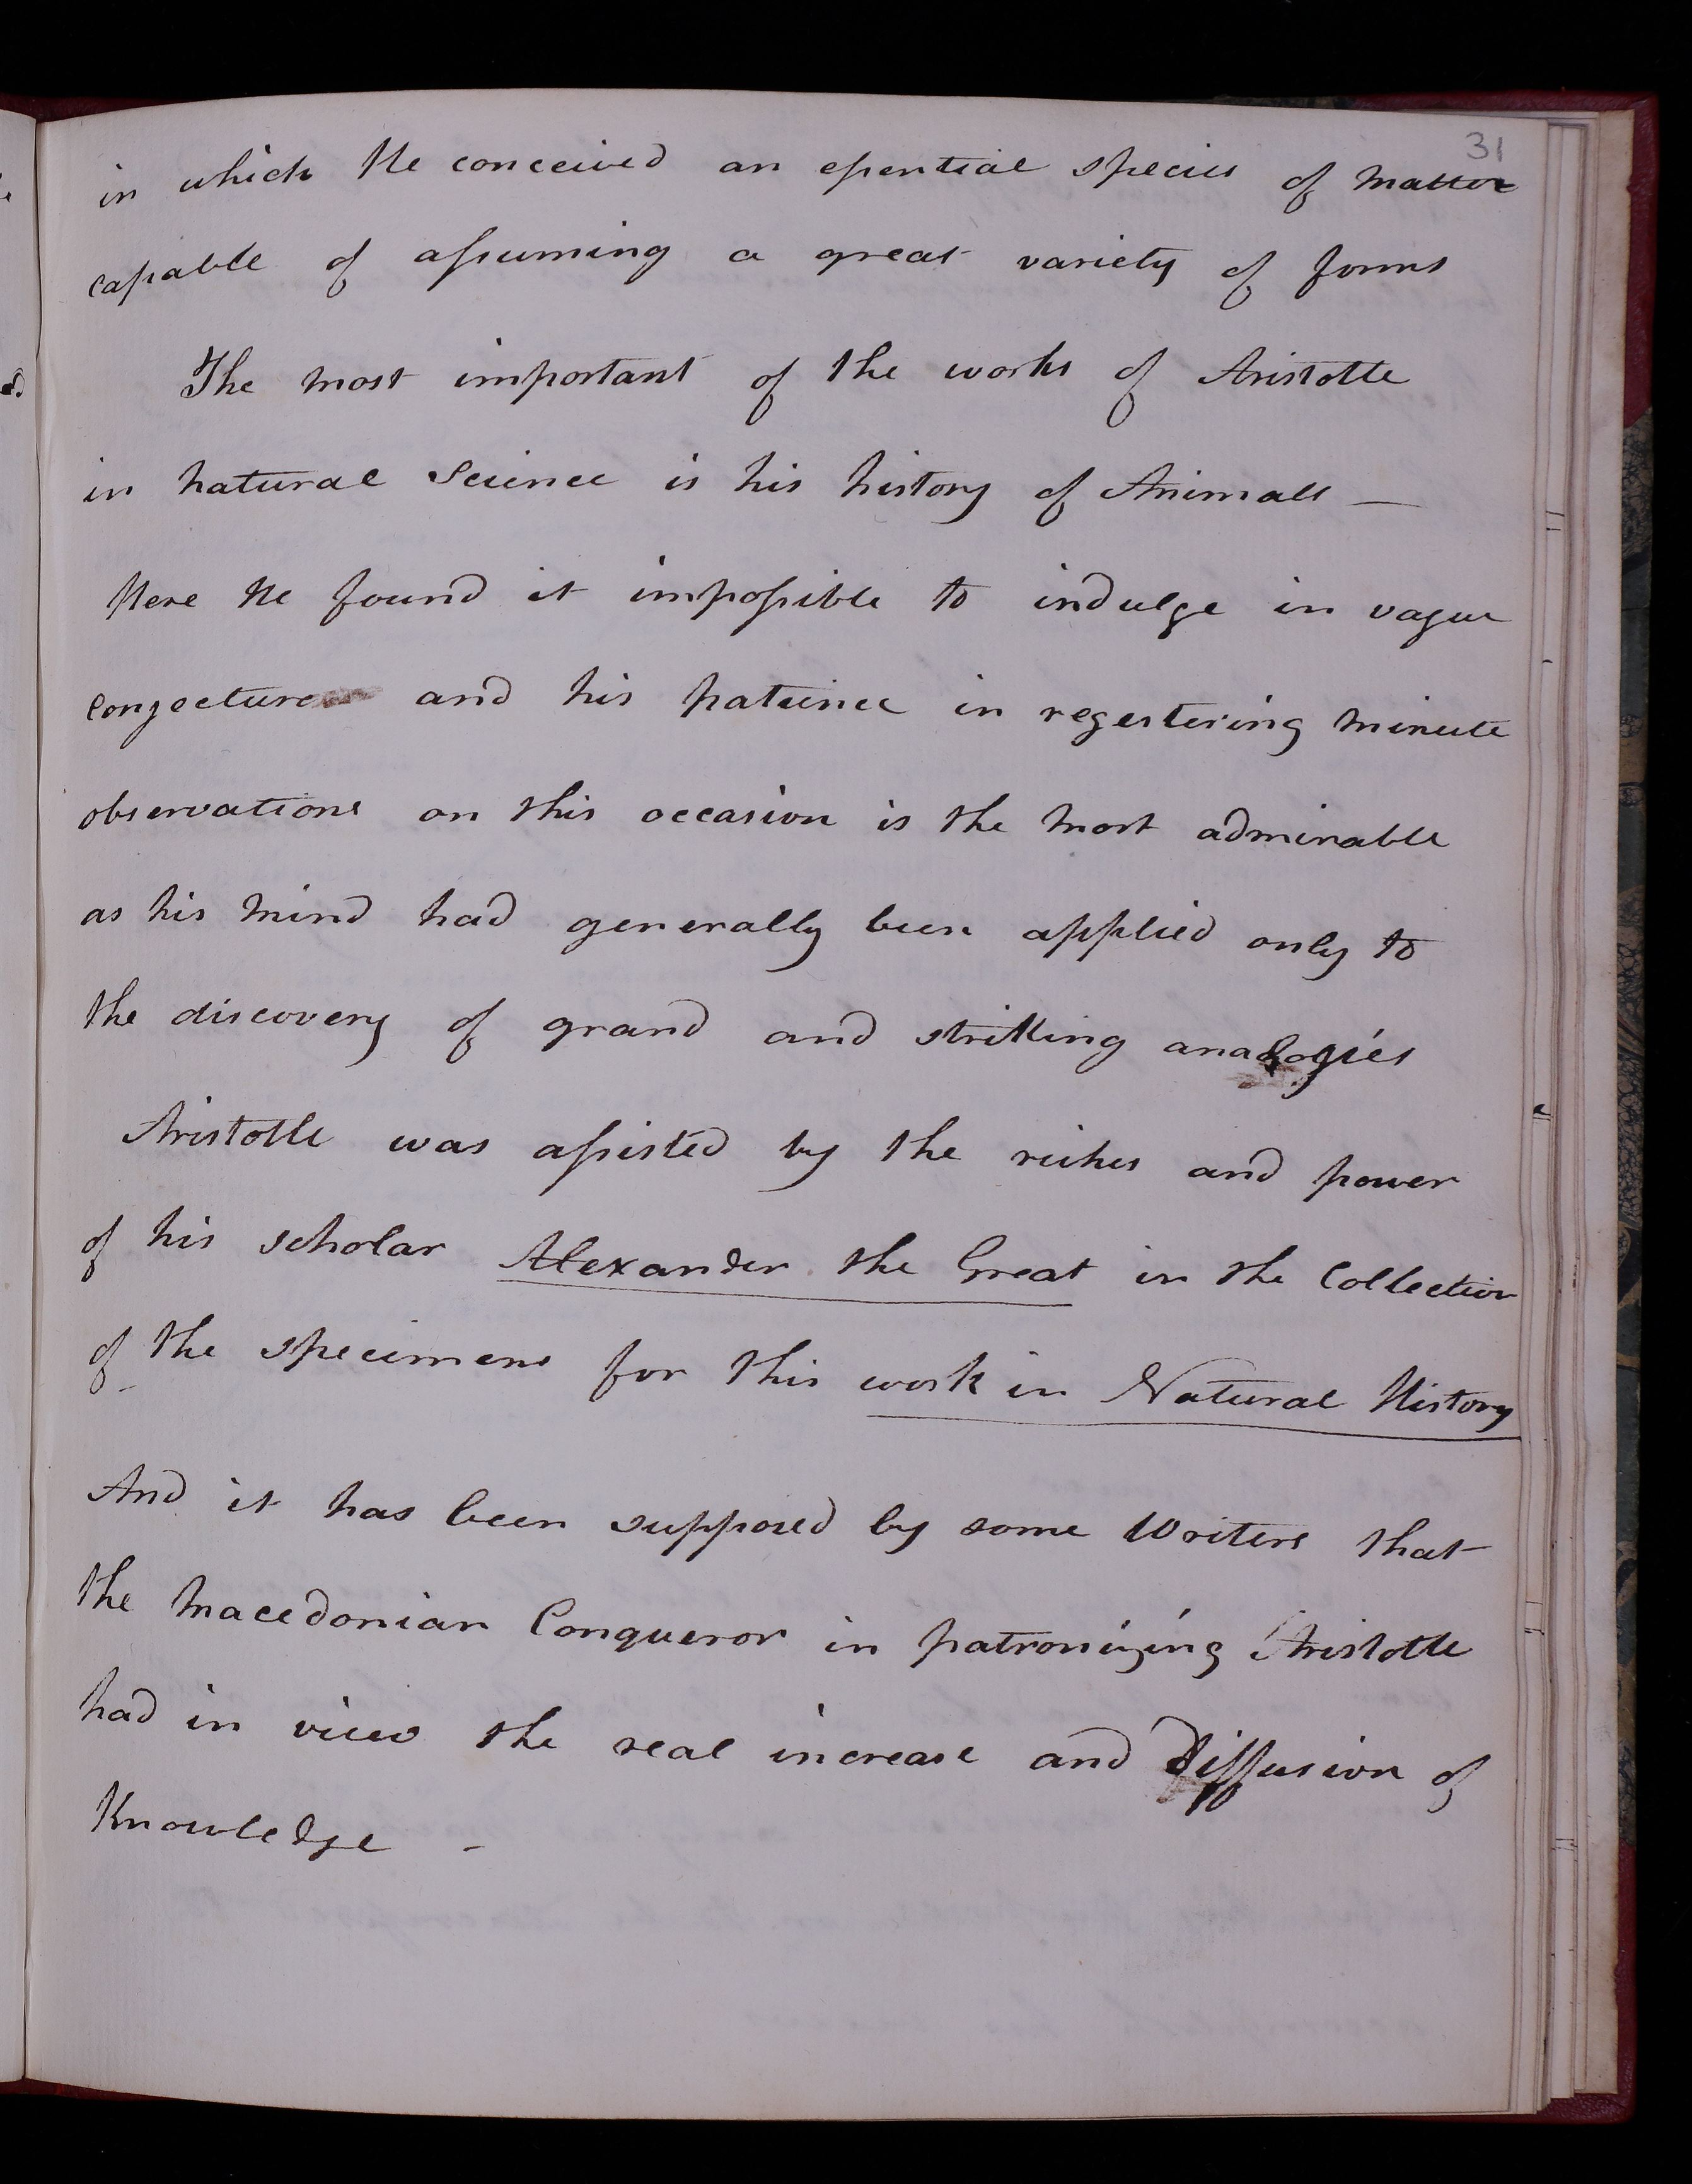 31
in which He conceived an essential species of matter
capable of assuming a great variety of forms
The most important of the works of Aristotle
in natural Science is his history of Animals —
Here He found it impossible to indulge in vague
conjecture and his patience in regestering minute
observations on this occasion is the most admirable
as his mind had generally been applied only to
the discovery of grand and striking analogies
Aristotle was assisted by the riches and power
of his scholar Alexander the Great in the Collection
of the specimens for this work in Natural History
And it has been supposed by some Writers that
the Macedonian Conqueror in patronizing Aristotle
had in view the real increase and Diffusion of
Knowledge -